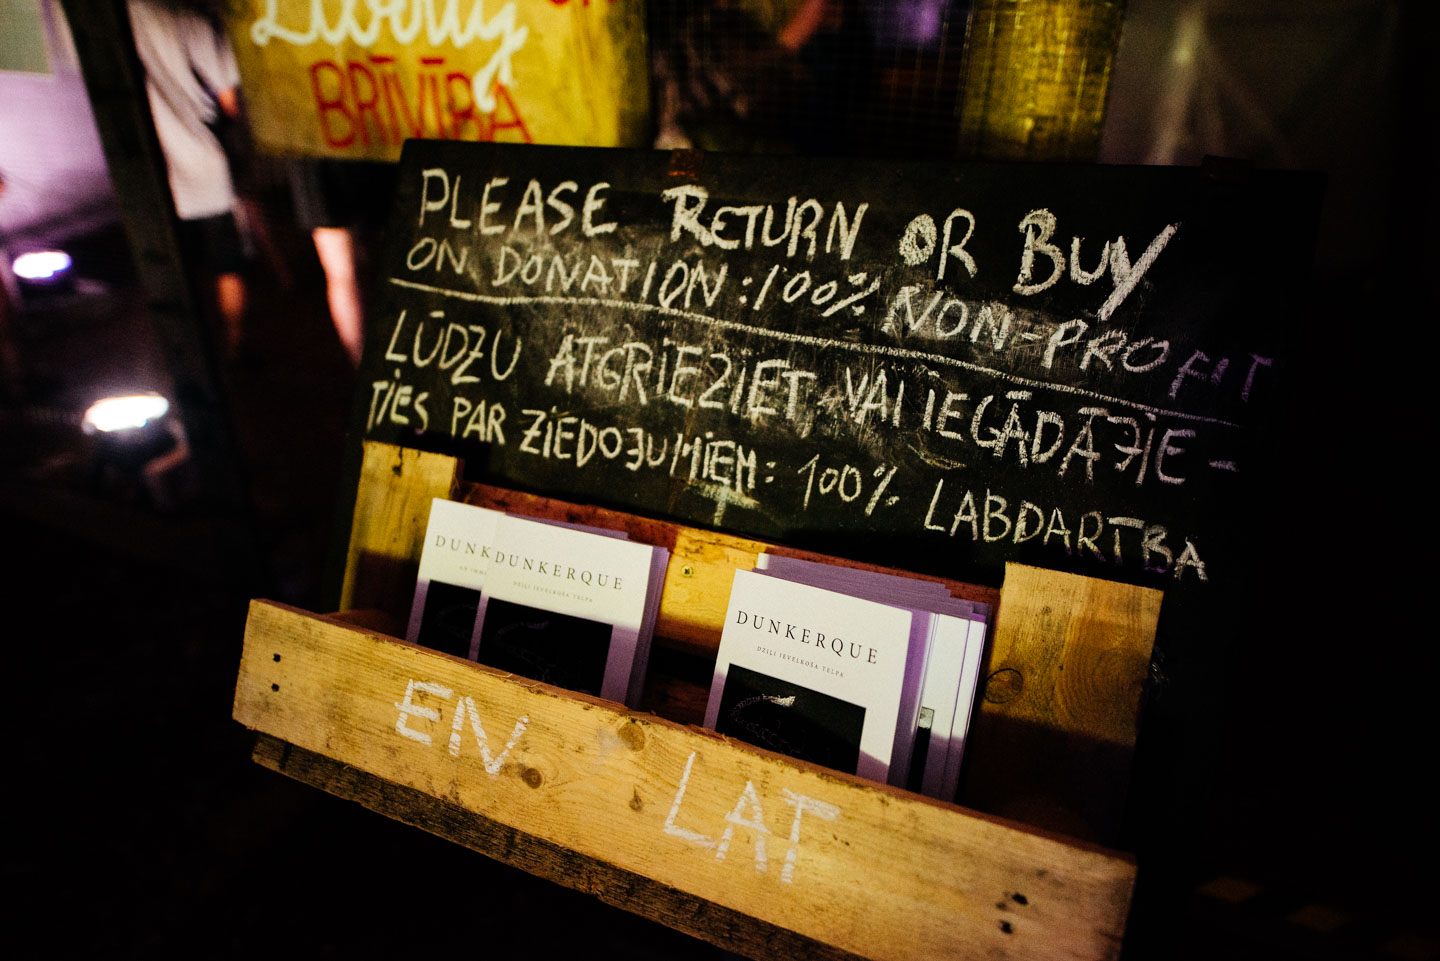 Liberty
BRĪVĪBA
PLEASE RETURN OR BUY
ON DONATION: 100% NON-PROFIT
LŪDZU ATGRIEZIET, VAI IEGĀDĀJIE-
TIES PAR ZIEDOJUMIEM: 100% LABDARTBA
DUNK
DUNKERQUE
DZIĻI IEVELKOŠA TELPA
DUNKERQUE
DZIĻI IEVELKOŠA TELPA
EN LAT